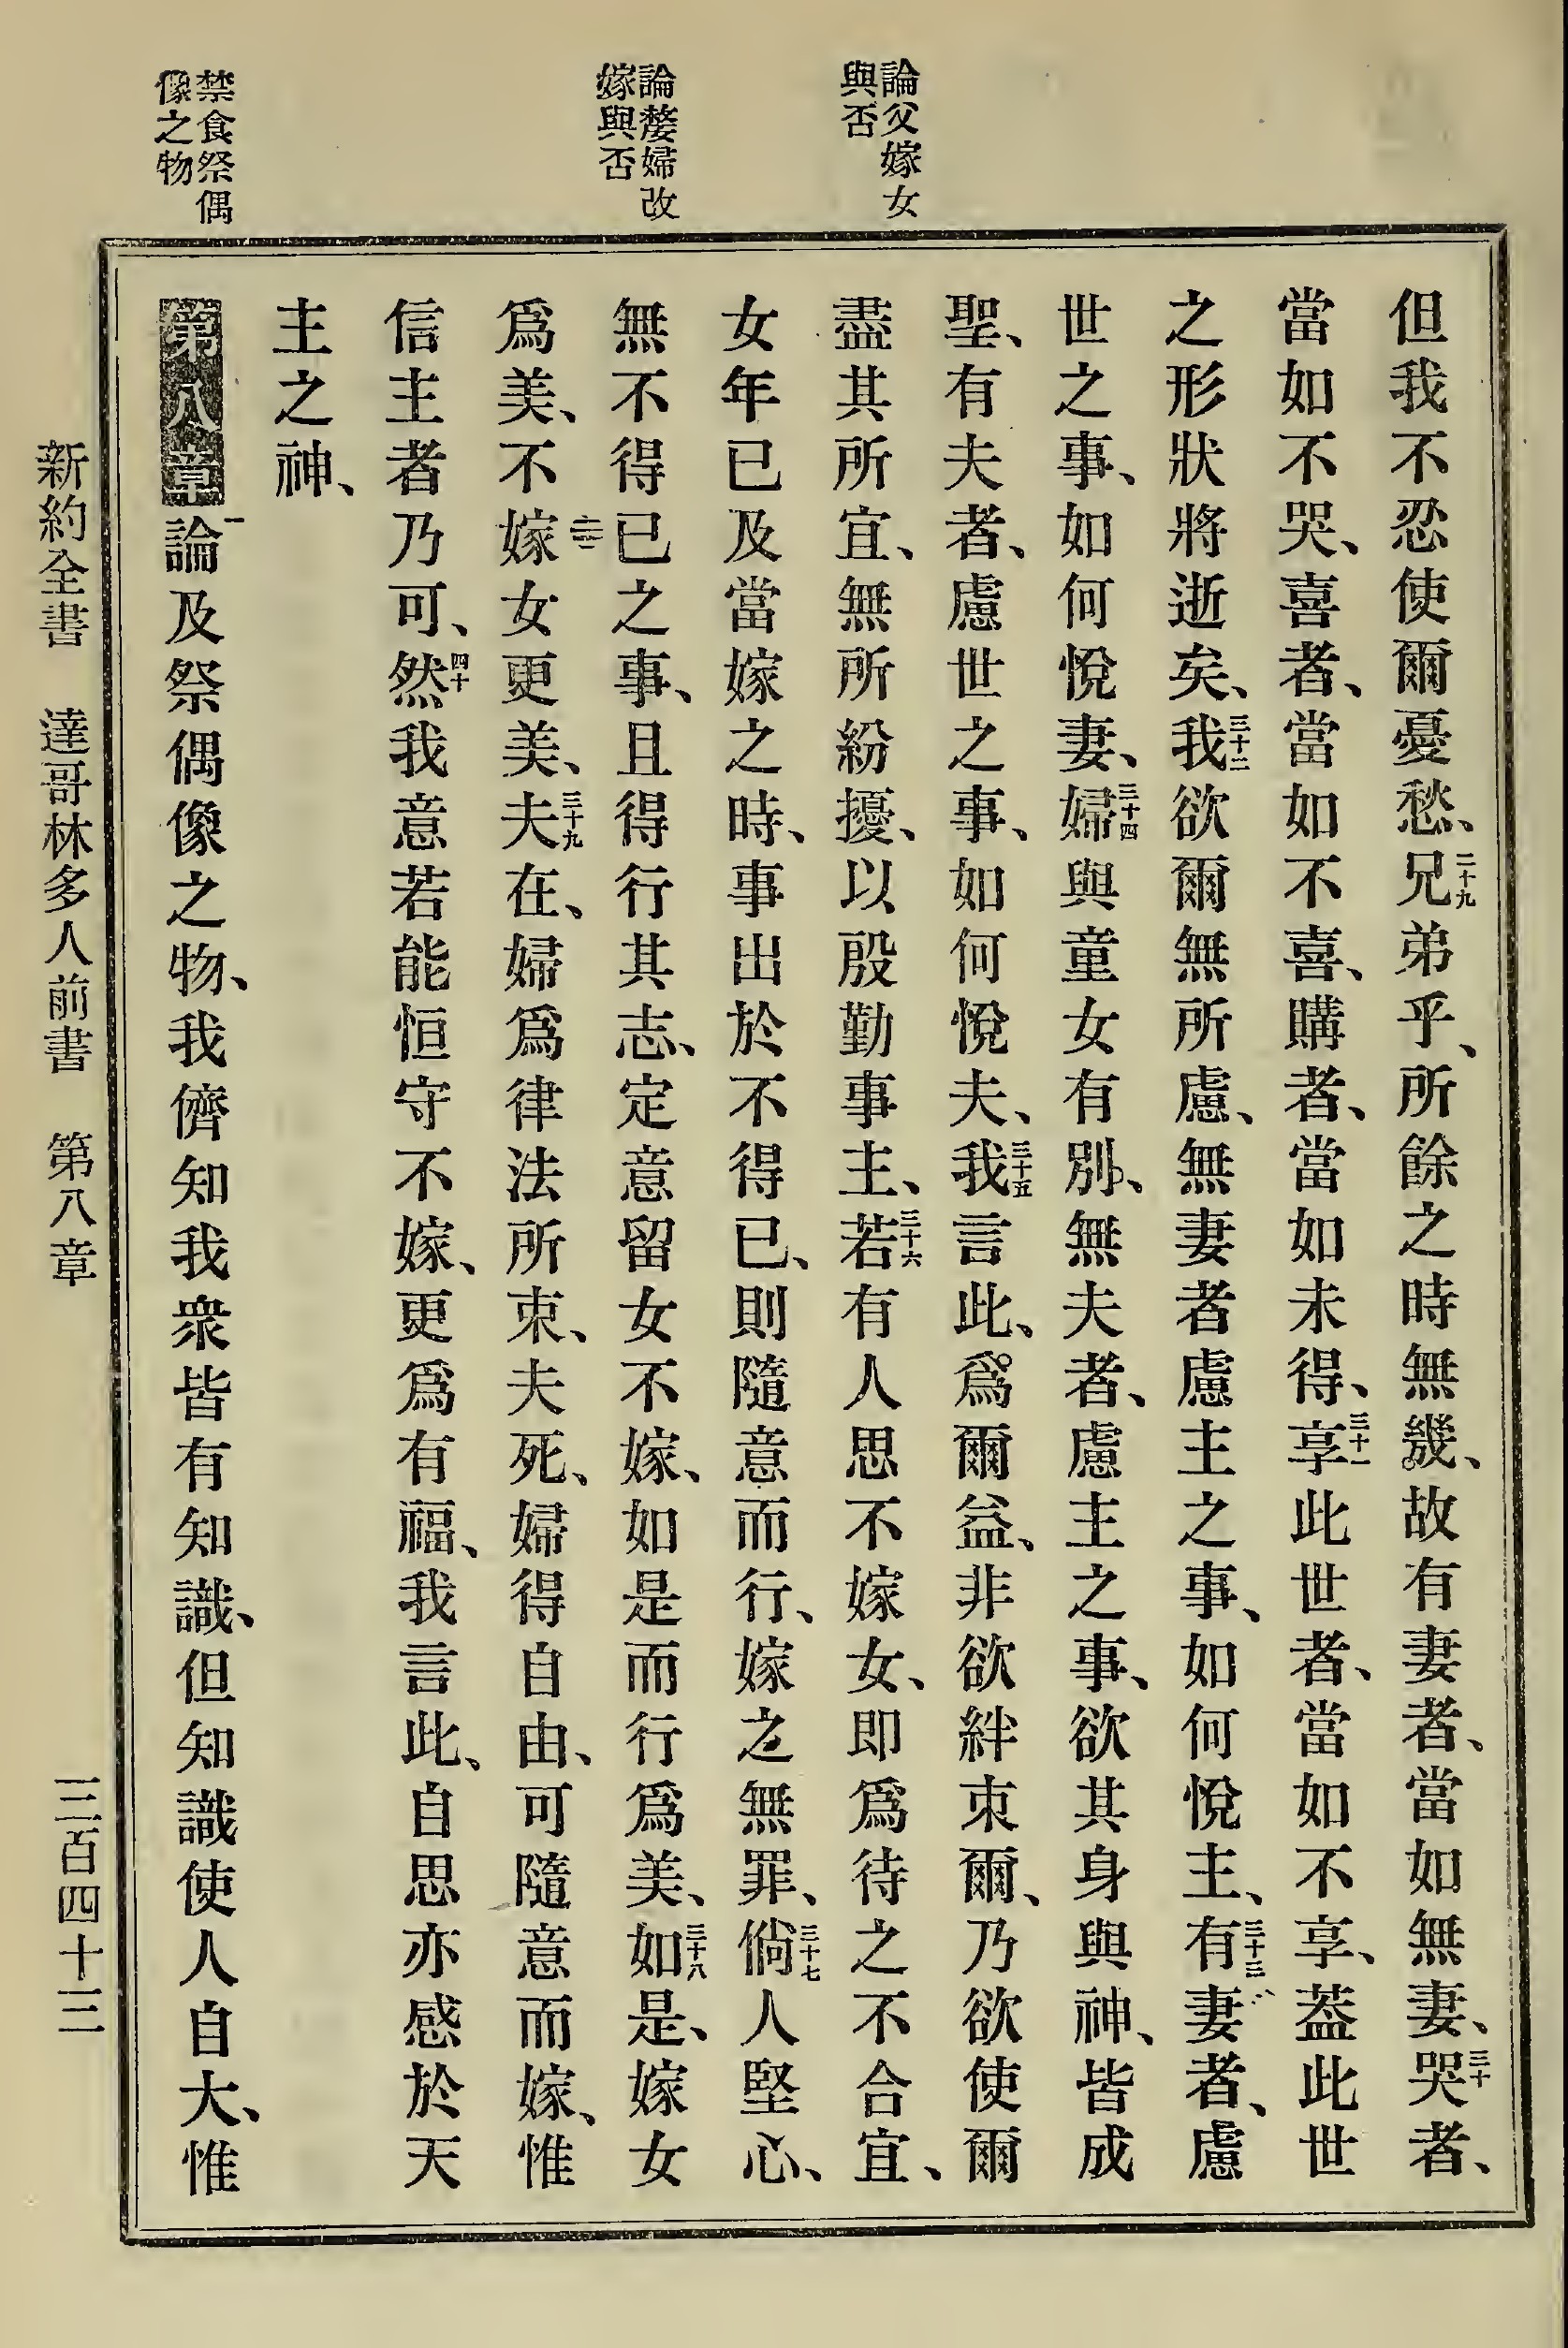 論父嫁女
與否
論嫠婦改
嫁與否
禁食祭偶
像之物
但我不忍使爾憂愁、二十九兄弟乎、所餘之時無幾、故有妻者、當如無妻、三十哭者、
當如不哭、喜者、當如不喜、購者、當如未得、三十一享此世者、當如不享、蓋此世
之形狀將逝矣、三十二我欲爾無所慮、無妻者慮主之事、如何悅主、三十三有妻者、慮
世之事、如何悅妻、三十四婦與童女有別、無夫者、慮主之事、欲其身與神、皆成
聖、有夫者、慮世之事、如何悅夫、三十五我言此、爲爾益、非欲絆束爾、乃欲使爾
盡其所宜、無所紛擾、以殷勤事主、三十六若有人思不嫁女、即爲待之不合宜、
女年已及當嫁之時、事出於不得已、則隨意而行、嫁之無罪、三十七倘人堅心、
無不得已之事、且得行其志、定意留女不嫁、如是而行爲美、三十八如是、嫁女
爲美、不嫁女更美、三十九夫在、婦爲律法所束、夫死、婦得自由、可隨意而嫁、惟
信主者乃可、四十然我意若能恒守不嫁、更爲有福、我言此、自思亦感於天
主之神、
第八章一論及祭偶像之物、我儕知我衆皆有知識、但知識使人自大、惟
新約全書 達哥林多人前書 第八章 三百四十三